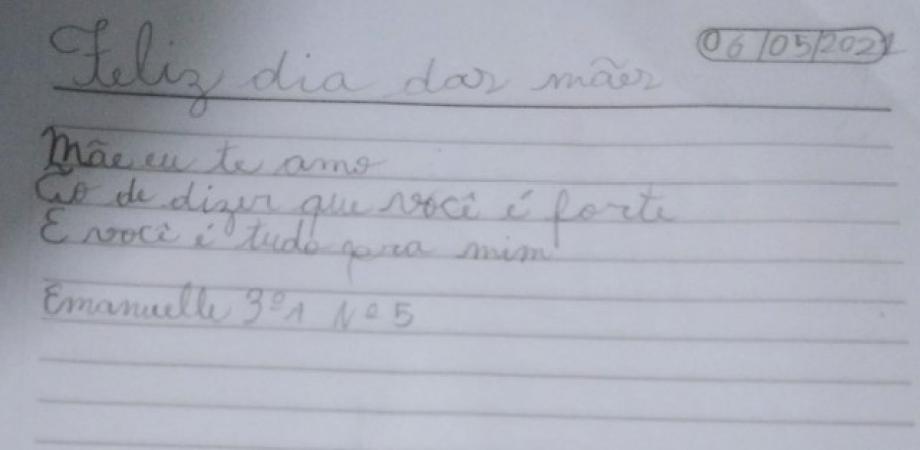 Feliz dia das mães 06/05/2021
Mãe eu te amo
Go de dizer que você é forte
E você é tudo para mim
Emanuelle 3º1 Nº 5